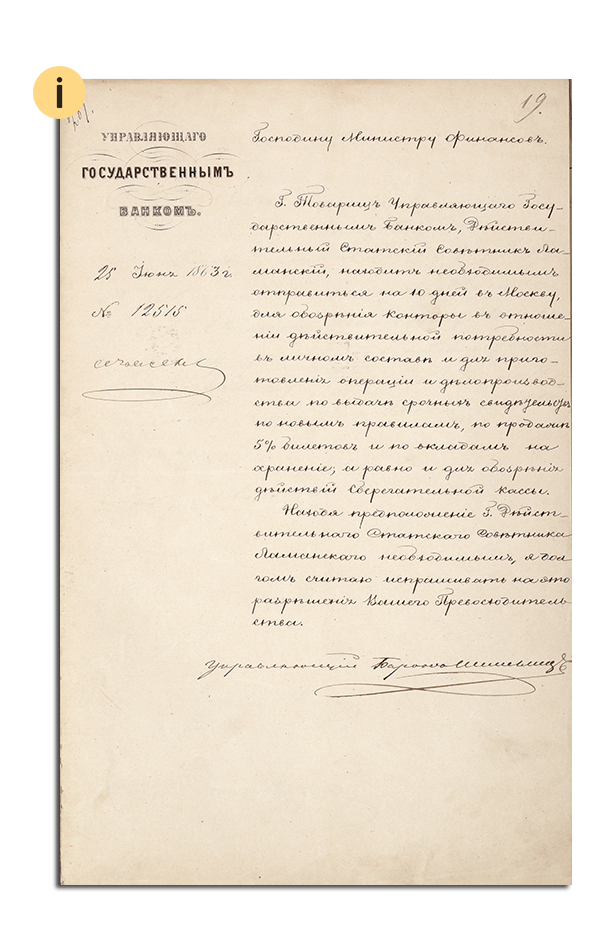 i
19.
УПРАВЛЯЮЩАГО
ГОСУДАРСТВЕННЫМЪ
БАНКОМЪ.
25 Июня 1863 г.
№ 12515
Господину Министру Финансовъ.
Г. Товарищъ Управляющаго Госу-
дарственнымъ Банкомъ, Дѣйстви-
тельный Статскій Совѣтникъ Ла-
манскій, находитъ необходимымъ
отправиться на 10 дней въ Москву,
для обозрѣнія конторы въ отноше-
ніи дѣйствительной потребности
въ личномъ составѣ и для приго-
товленія операціи и дѣлопроизвод-
ства по выдачѣ срочныхъ свидѣтельствъ
по новымъ правиламъ, по продажѣ
5% билетовъ и по вкладамъ на
храненіе; а равно и для обозрѣнія
дѣйствій Сберегательной кассы.
Находя предположеніе Г. Дѣйст-
вительнаго Статскаго Совѣтника
Ламанскаго необходимымъ, я дол-
гомъ считаю испрашивать на это
разрѣшенія Вашего Превосходитель-
ства.
Управляющій Баронъ Штиглицъ